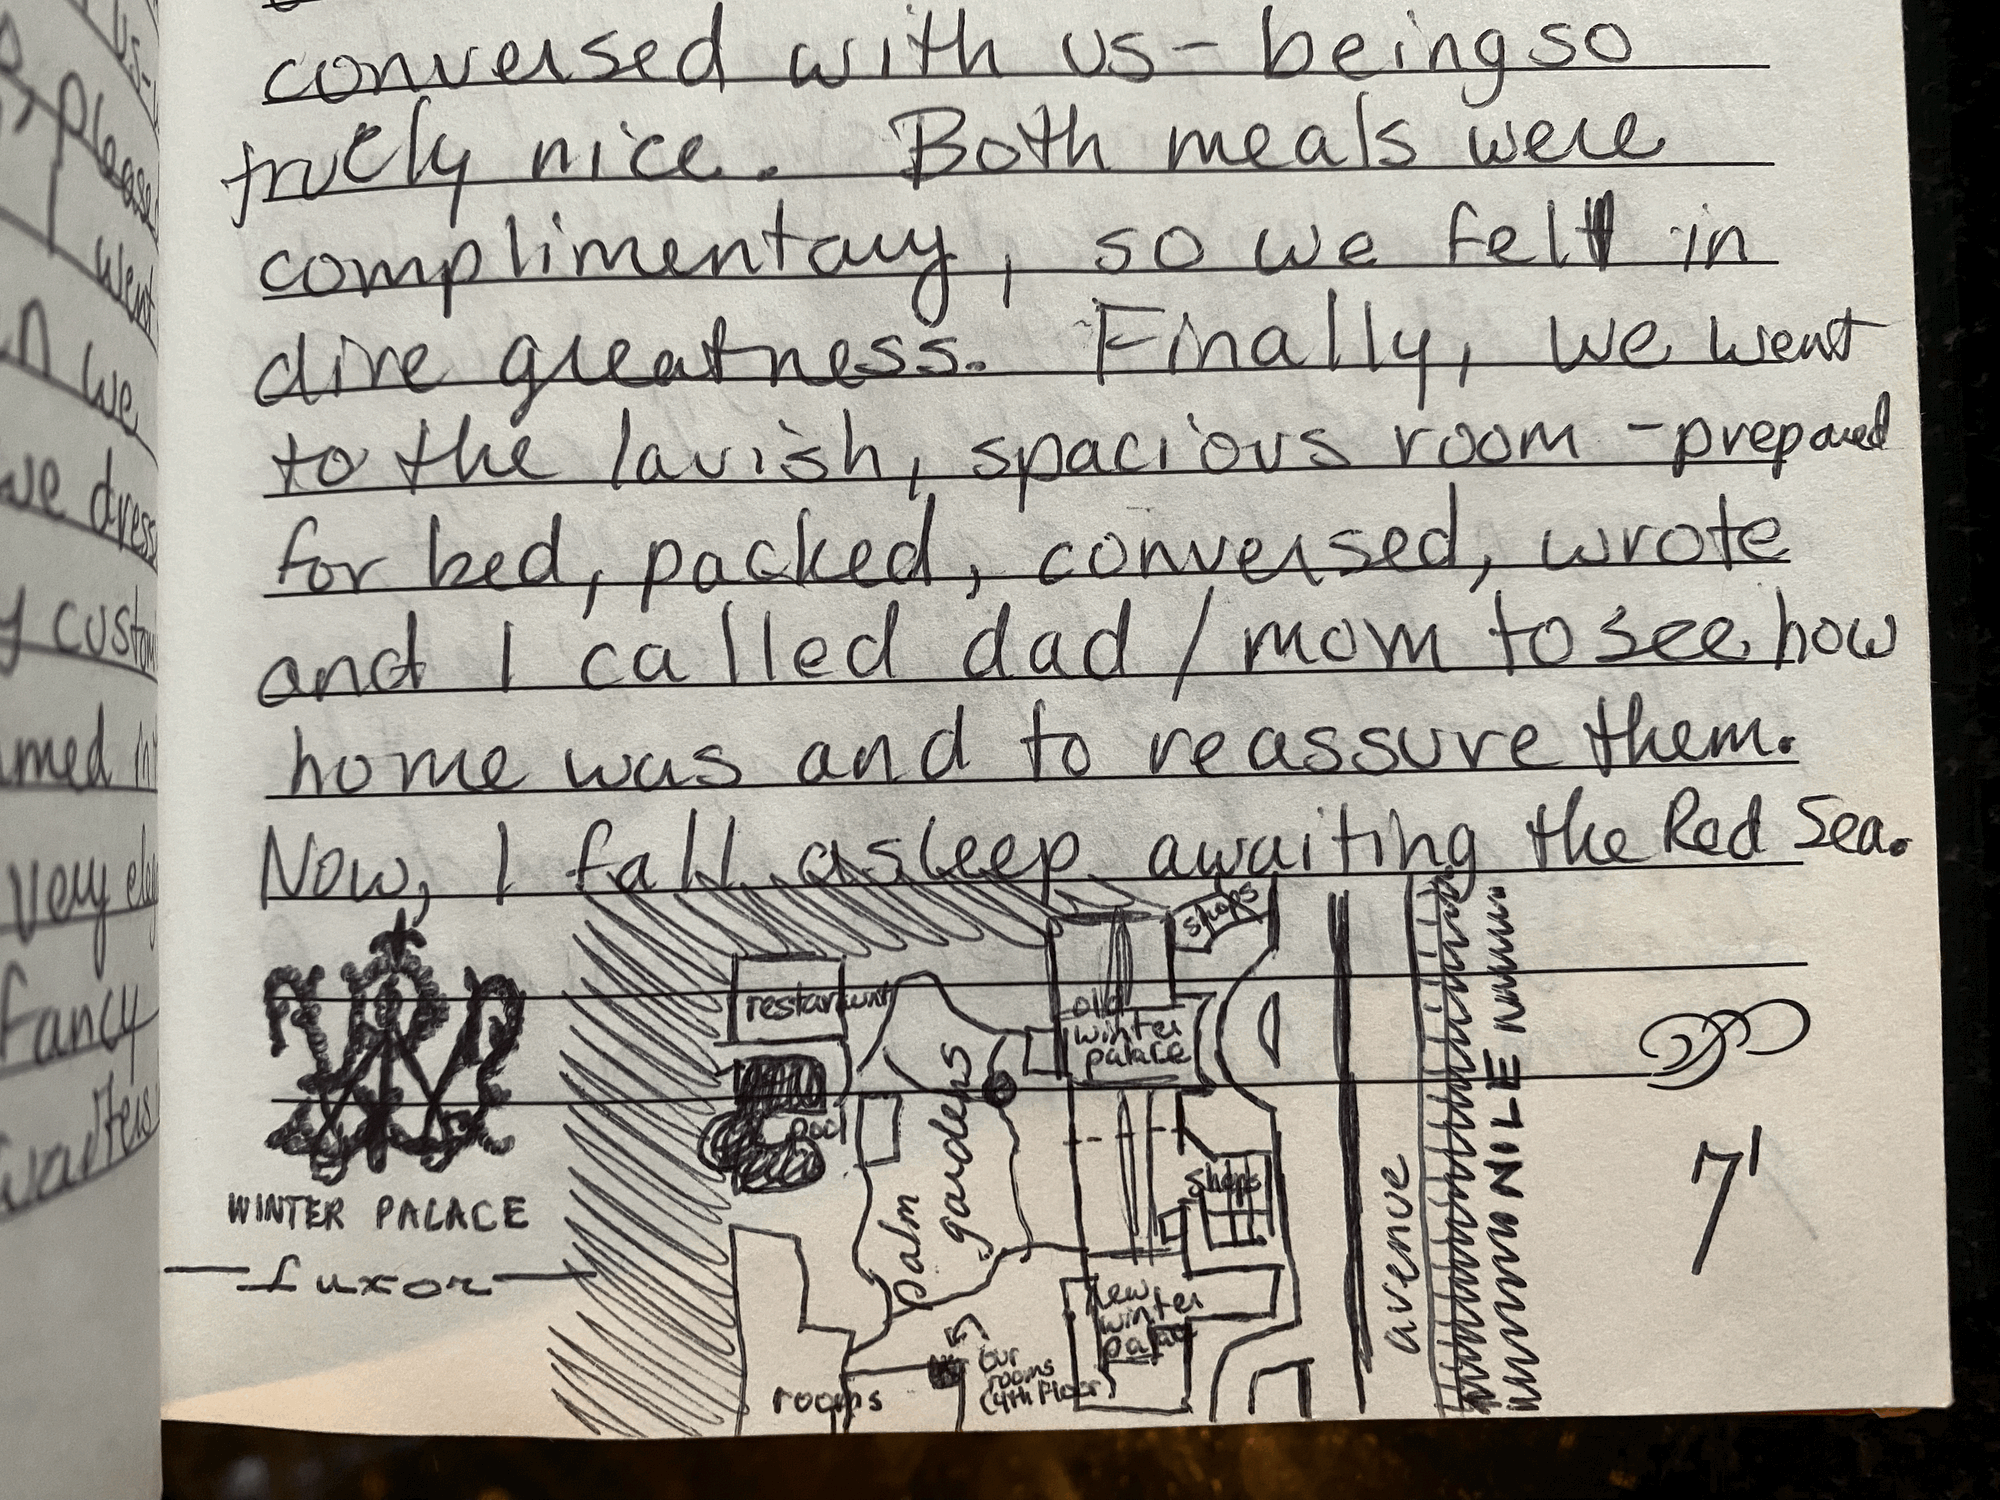 conversed with us - being so
truely nice. Both meals were
complimentary, so we felt in
dire greatness. Finally, we went
to the lavish, spacious room - prepared
for bed, packed, conversed, wrote
and I called dad / mom to see how
home was and to reassure them.
Now, I fall asleep awaiting the Red Sea.
shops
restaraunt
old
winter
palace
pool
palm gardens
shops
new
winter
palace
our
rooms
(4th Floor)
rooms
avenue
NILE
WINTER PALACE
Luxor
71
us-
please
went
we
we dress
custom
med in
very ele
fancy
waiters